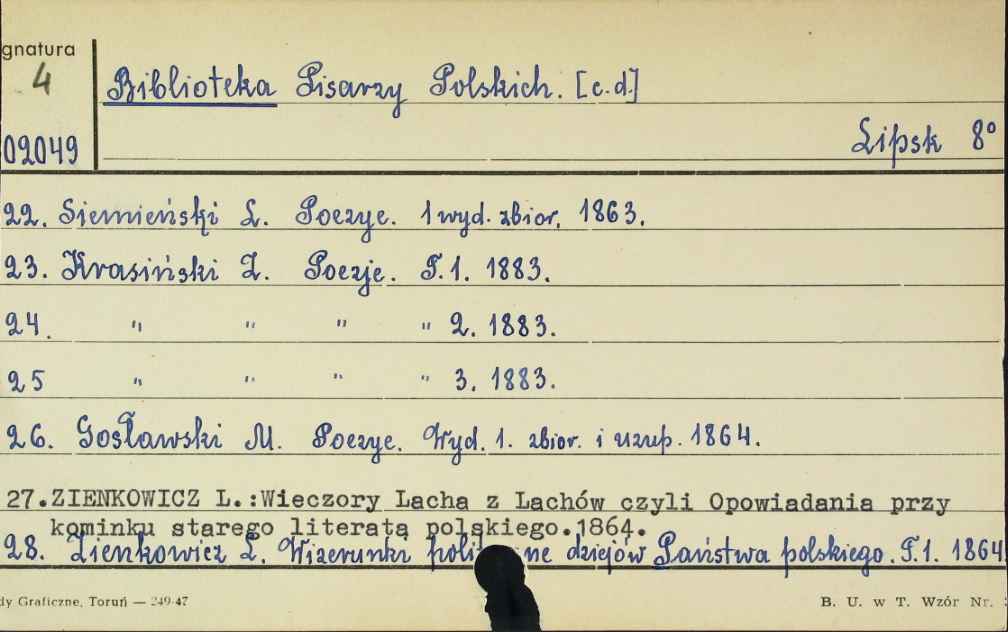 gnatura
4
Biblioteka Pisarzy Polskich. [c.d.]
02049
Lipsk 8°
22. Siemieński L. Poezye. 1 wyd. zbior. 1863.
23. Krasiński Z. Poezje. T.1. 1883.
24. " " " " 2. 1883.
25 " " " " 3. 1883.
26. Gosławski M. Poezye. Wyd. 1. zbior. i uzup. 1864.
27.ZIENKOWICZ L.:Wieczory Lacha z Lachów czyli Opowiadania przy
kominku starego literata polskiego.1864.
28. Zienkowicz L. Wizerunki dziejów Państwa polskiego. T.1. 1864
dy Graficzne, Toruń — 249-47
B. U. w T. Wzór Nr.